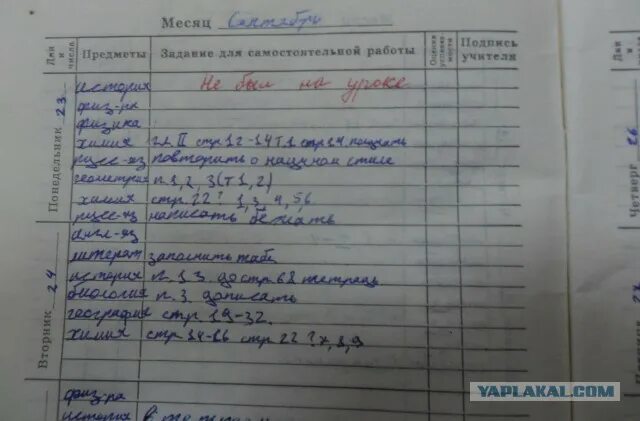 Месяц Сентябрь
Дни и числа Предметы Задание для самостоятельной работы Оценка успеваемости Подпись учителя
Понедельник 23
история Не был на уроке
физ-ра
физика
химия гл II стр 12-14 Т1 стр 14
русс-яз повторить о научном стиле
геометрия п. 1, 2, 3 (Т 1, 2)
химия стр 22? 1, 3, 4, 5 6
русс-яз написать
англ-яз
Вторник 24
литерат заполнить табл
история п. 13 до стр тетрадь
биология п. 3 дописать
география стр 19-32.
химия стр стр 22 ? 8, 9
физ-ра
история в
Четверг 26
YAPLAKAL.COM